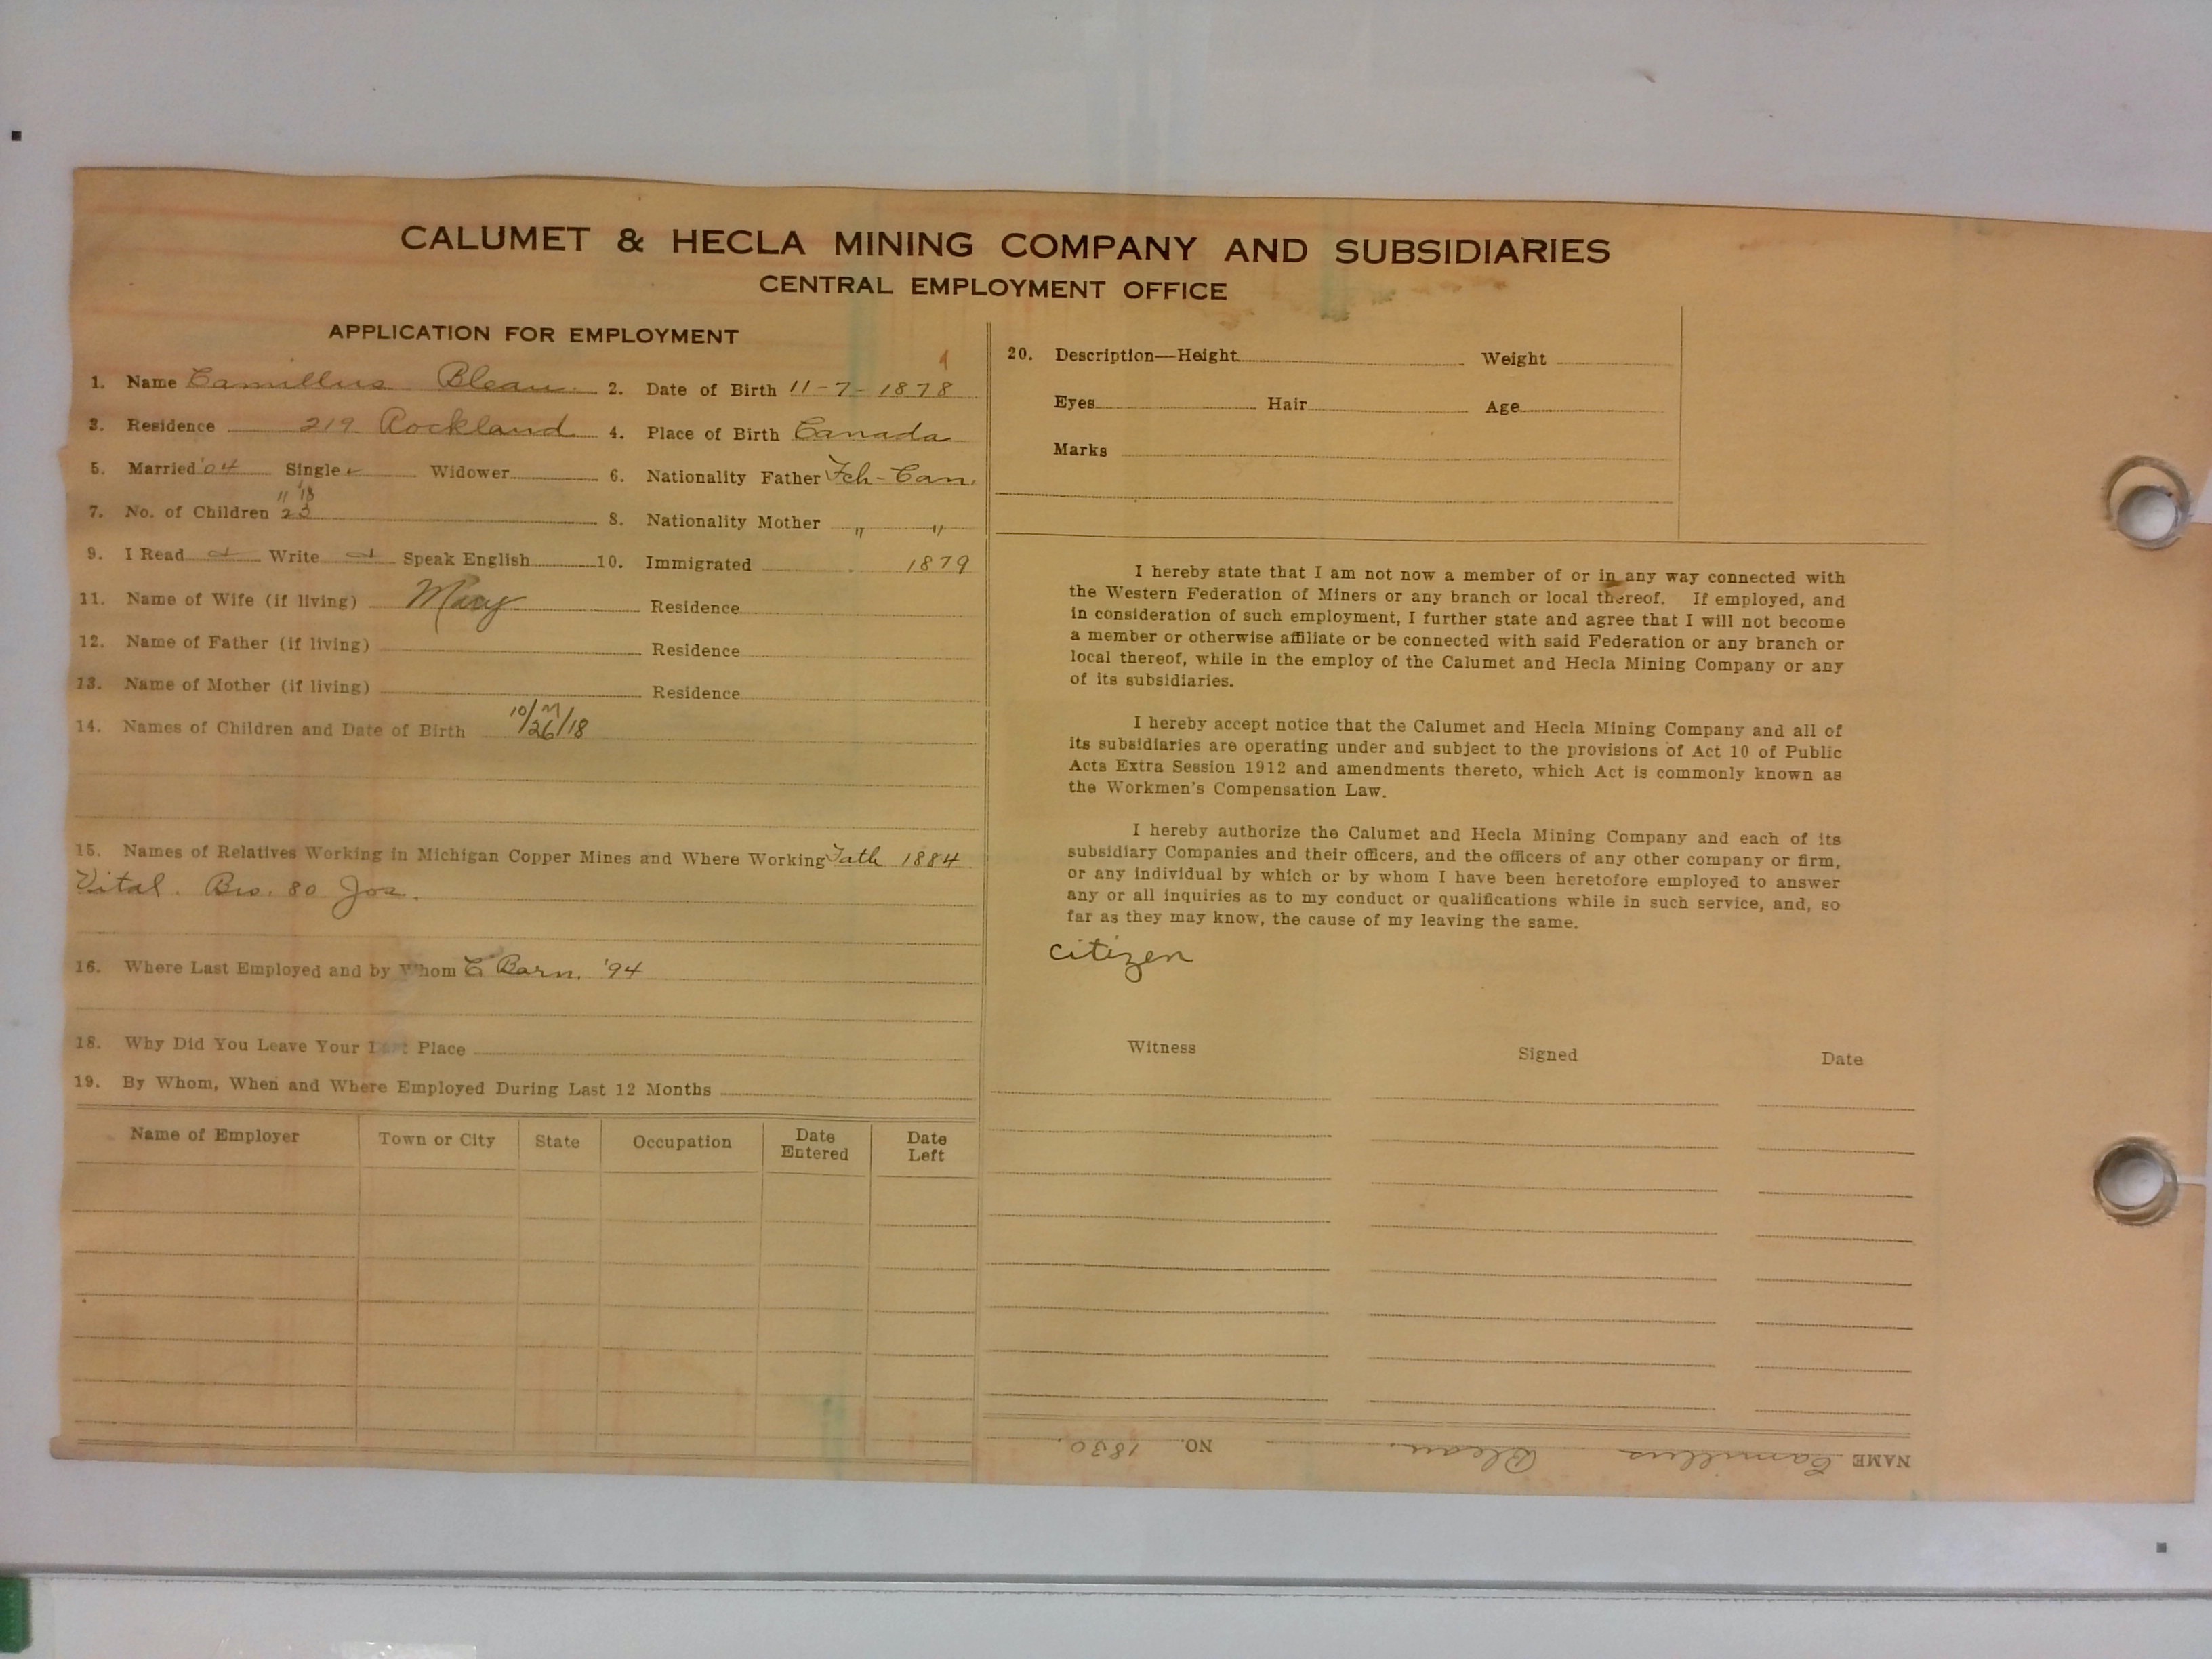 CALUMET & HECLA MINING COMPANY AND SUBSIDIARIES
CENTRAL EMPLOYMENT OFFICE
APPLICATION FOR EMPLOYMENT
1. Name Camillus Bleau 2. Date of Birth 11-7-1878
3. Residence 219 Rockland 4. Place of Birth Canada
5. Married '04 Single Widower 6. Nationality Father Fch-Can.
11 13
7. No. of Children 2 3 8. Nationality Mother " "
9. I Read Write Speak English 10. Immigrated 1879
11. Name of Wife (if living) Mary Residence
12. Name of Father (if living) Residence
13. Name of Mother (if living) Residence
14. Names of Children and Date of Birth 10/26/18 M
15. Names of Relatives Working in Michigan Copper Mines and Where Working Fath 1884
Vital. Bro. 80 Jos.
16. Where Last Employed and by Whom C Barn. '94
18. Why Did You Leave Your Last Place
19. By Whom, When and Where Employed During Last 12 Months
Name of Employer Town or City State Occupation Date Entered Date Left
20. Description—Height Weight
Eyes Hair Age
Marks
I hereby state that I am not now a member of or in any way connected with
the Western Federation of Miners or any branch or local thereof. If employed, and
in consideration of such employment, I further state and agree that I will not become
a member or otherwise affiliate or be connected with said Federation or any branch or
local thereof, while in the employ of the Calumet and Hecla Mining Company or any
of its subsidiaries.
I hereby accept notice that the Calumet and Hecla Mining Company and all of
its subsidiaries are operating under and subject to the provisions of Act 10 of Public
Acts Extra Session 1912 and amendments thereto, which Act is commonly known as
the Workmen's Compensation Law.
I hereby authorize the Calumet and Hecla Mining Company and each of its
subsidiary Companies and their officers, and the officers of any other company or firm,
or any individual by which or by whom I have been heretofore employed to answer
any or all inquiries as to my conduct or qualifications while in such service, and, so
far as they may know, the cause of my leaving the same.
citizen
Witness Signed Date
NAME Camillus Bleau. NO. 1830.